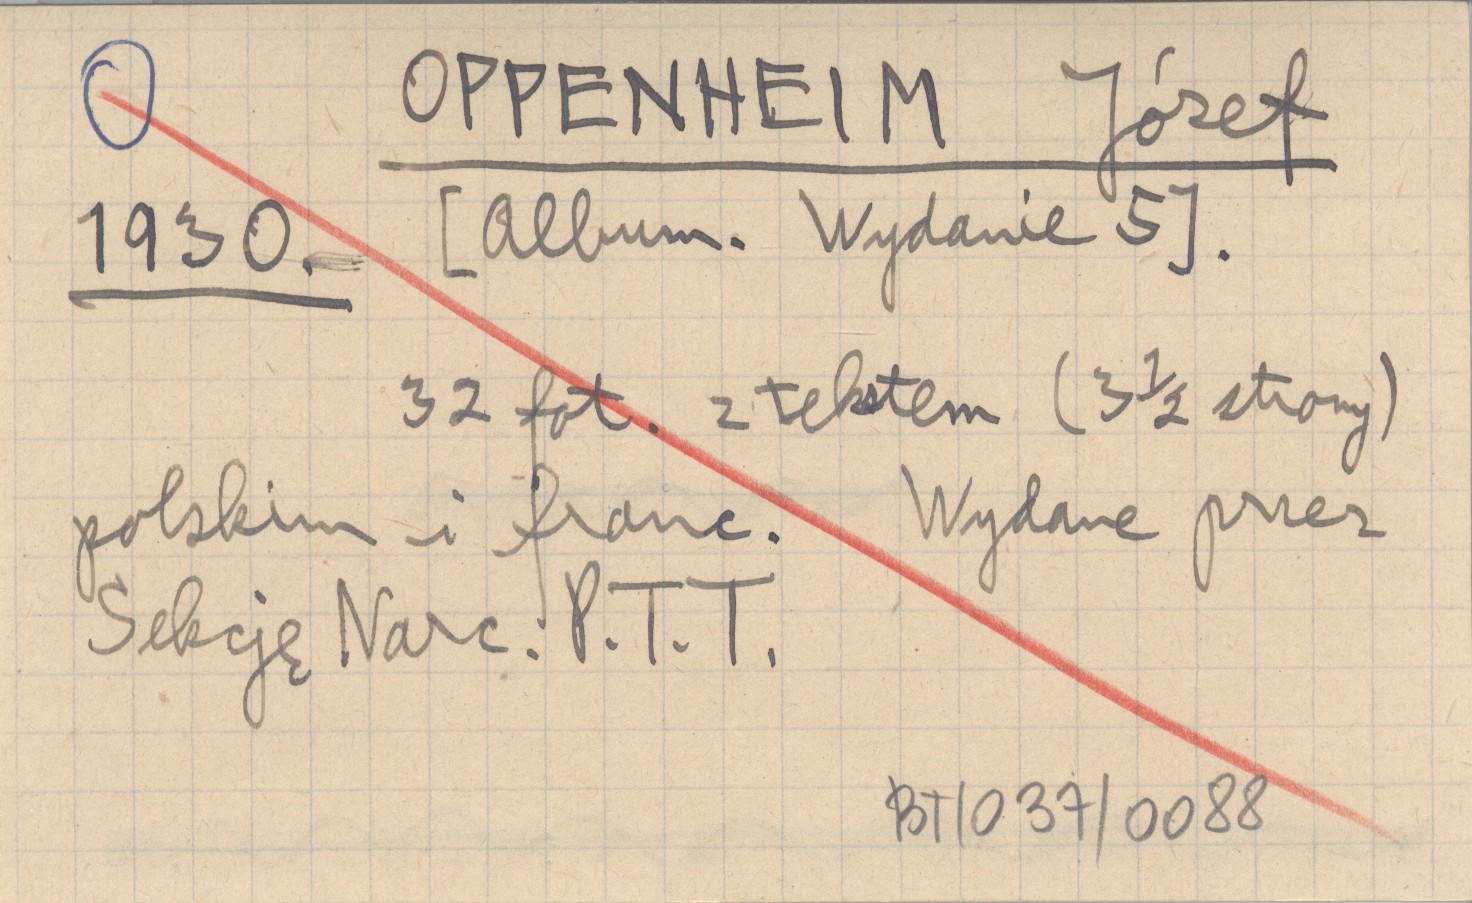 OPPENHEIM Józef
1930. [Album. Wydanie 5].
32 fot. z tekstem (3 1/2 strony)
polskim i franc. Wydane przez
Sekcję Narc. P.T.T.
BT/037/0088